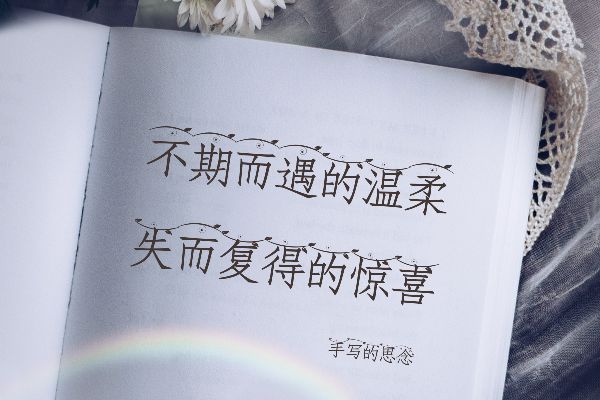 不期而遇的温柔
失而复得的惊喜
手写的思念